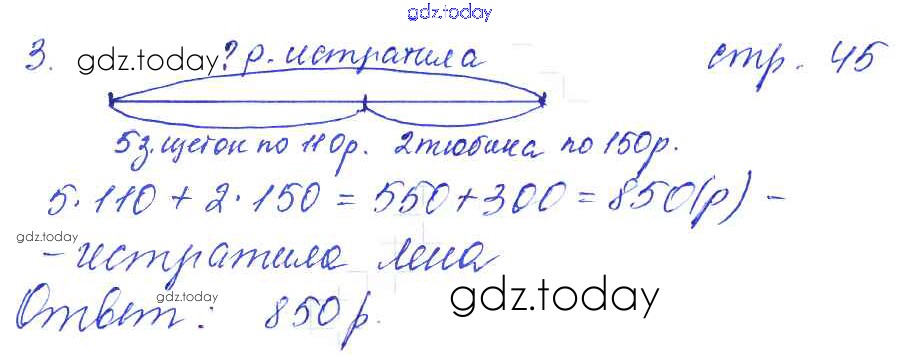 gdz.today
3. gdz.today ? р. истратила стр. 45
5 з. щеток по 110р. 2 тюбика по 150р.
5·110 + 2·150 = 550 + 300 = 850(р) -
gdz.today
- истратила Лена
Ответ: 850 р.
gdz.today
gdz.today